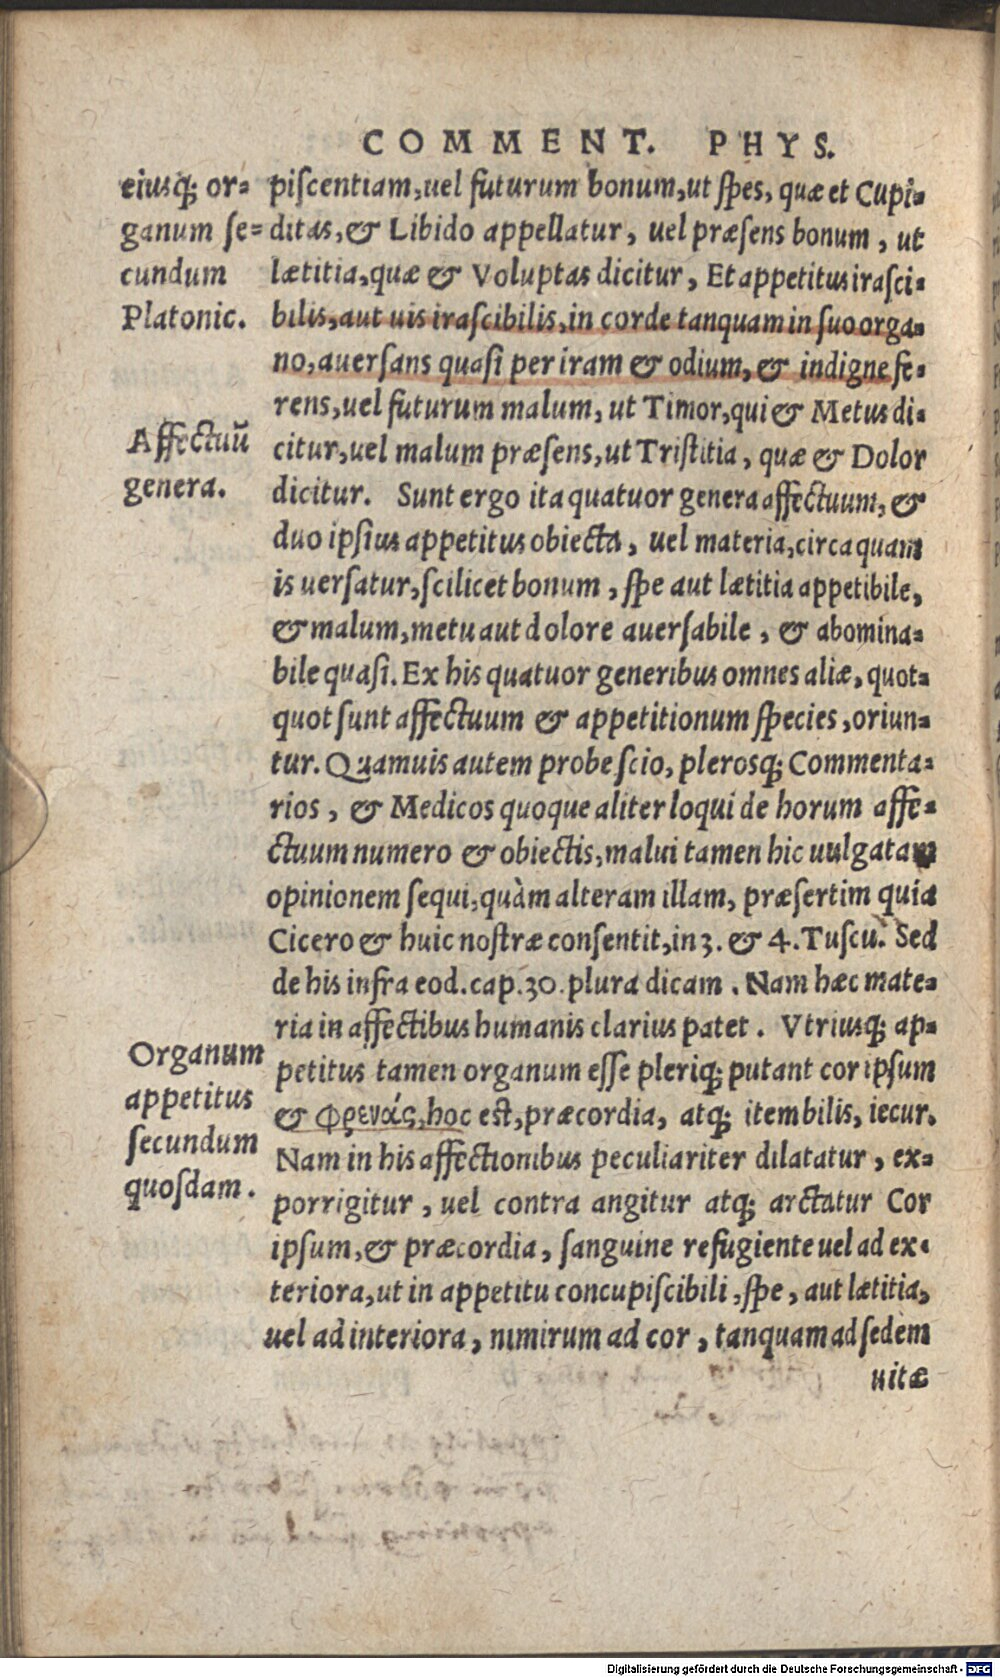 COMMENT. PHYS.
eiusq; or-
ganum se-
cundum
Platonic.
piscentiam, uel futurum bonum, ut spes, quæ et Cupi-
ditas, & Libido appellatur, uel præsens bonum, ut
lætitia, quæ & Voluptas dicitur, Et appetitus irasci-
bilis, aut uis irascibilis, in corde tanquam in suo orga-
no, auersans quasi per iram & odium, & indigne fe-
rens, uel futurum malum, ut Timor, qui & Metus di-
Affectuū
genera.
citur, uel malum præsens, ut Tristitia, quæ & Dolor
dicitur. Sunt ergo ita quatuor genera affectuum, &
duo ipsius appetitus obiecta, uel materia, circa quam
is uersatur, scilicet bonum, spe aut lætitia appetibile,
& malum, metu aut dolore auersabile, & abomina-
bile quasi. Ex his quatuor generibus omnes aliæ, quot-
quot sunt affectuum & appetitionum species, oriun-
tur. Quamuis autem probe scio, plerosq; Commenta-
rios, & Medicos quoque aliter loqui de horum affe-
ctuum numero & obiectis, malui tamen hic uulgatam
opinionem sequi, quàm alteram illam, præsertim quia
Cicero & huic nostræ consentit, in 3. & 4. Tuscu. Sed
de his infra eod. cap. 30. plura dicam. Nam hæc mate-
ria in affectibus humanis clarius patet. Vtriusq; ap-
Organum
appetitus
secundum
quosdam.
petitus tamen organum esse pleriq; putant cor ipsum
& φρενάς, hoc est, præcordia, atq; item bilis, iecur.
Nam in his affectionibus peculiariter dilatatur, ex-
porrigitur, uel contra angitur atq; arctatur Cor
ipsum, & præcordia, sanguine refugiente uel ad ex-
teriora, ut in appetitu concupiscibili, spe, aut lætitia,
uel ad interiora, nimirum ad cor, tanquam ad sedem
uitæ
Digitalisierung gefördert durch die Deutsche Forschungsgemeinschaft - DFG